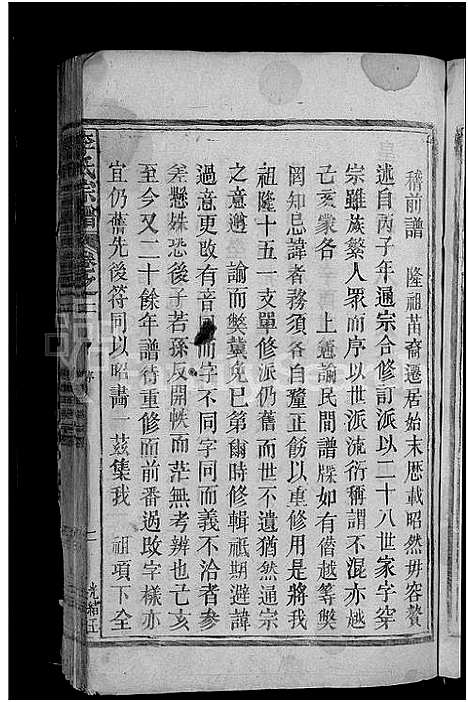 稽前譜　隆祖苗裔遷居始末歷載昭然毋容贅
述自丙子年通宗合修訂派以二十八世家字穿
宗雖族繁人眾而序以世派流衍稱謂不混亦越
己亥歲各　上憲諭民間譜牒如有僭越等獘
罔知忌諱者務須各自釐正飭以重修是將我
祖隆十五一支單修派仍舊而世不遺猶然通宗
之意遵　諭而獘蘽免已第爾時修輯祇期避諱
過意更改有音同而字不同字同而義不洽者參
差懸殊恐後子若孫反開帙而茫無考辨也己亥
至今又二十餘年譜待重修而前番過改字樣亦
宜仍舊先後符同以昭畫一茲集我　祖項下全
李氏宗譜 卷之二
序
光裕五